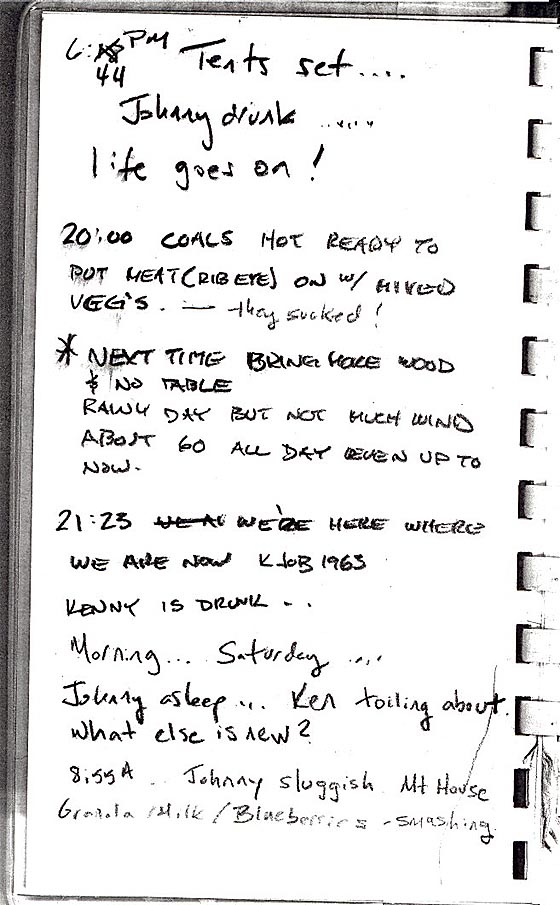 6:44 PM Tents set....
Johnny drunk ......
life goes on!
20:00 COALS HOT READY TO
PUT MEAT (RIBEYE) ON W/ MIXED
VEGG'S. — they sucked!
* NEXT TIME BRING MORE WOOD
& NO TABLE
RAINY DAY BUT NOT MUCH WIND
ABOUT 60 ALL DAY EVEN UP TO
NOW.
21:23 WE'RE HERE WHERE
WE ARE NOW KJOB 1963
KENNY IS DRUNK - -
Morning... Saturday ....
Johnny asleep... Ken toiling about.
What else is new?
8:55A . Johnny sluggish Mt House
Granola / Milk / Blueberries - smashing